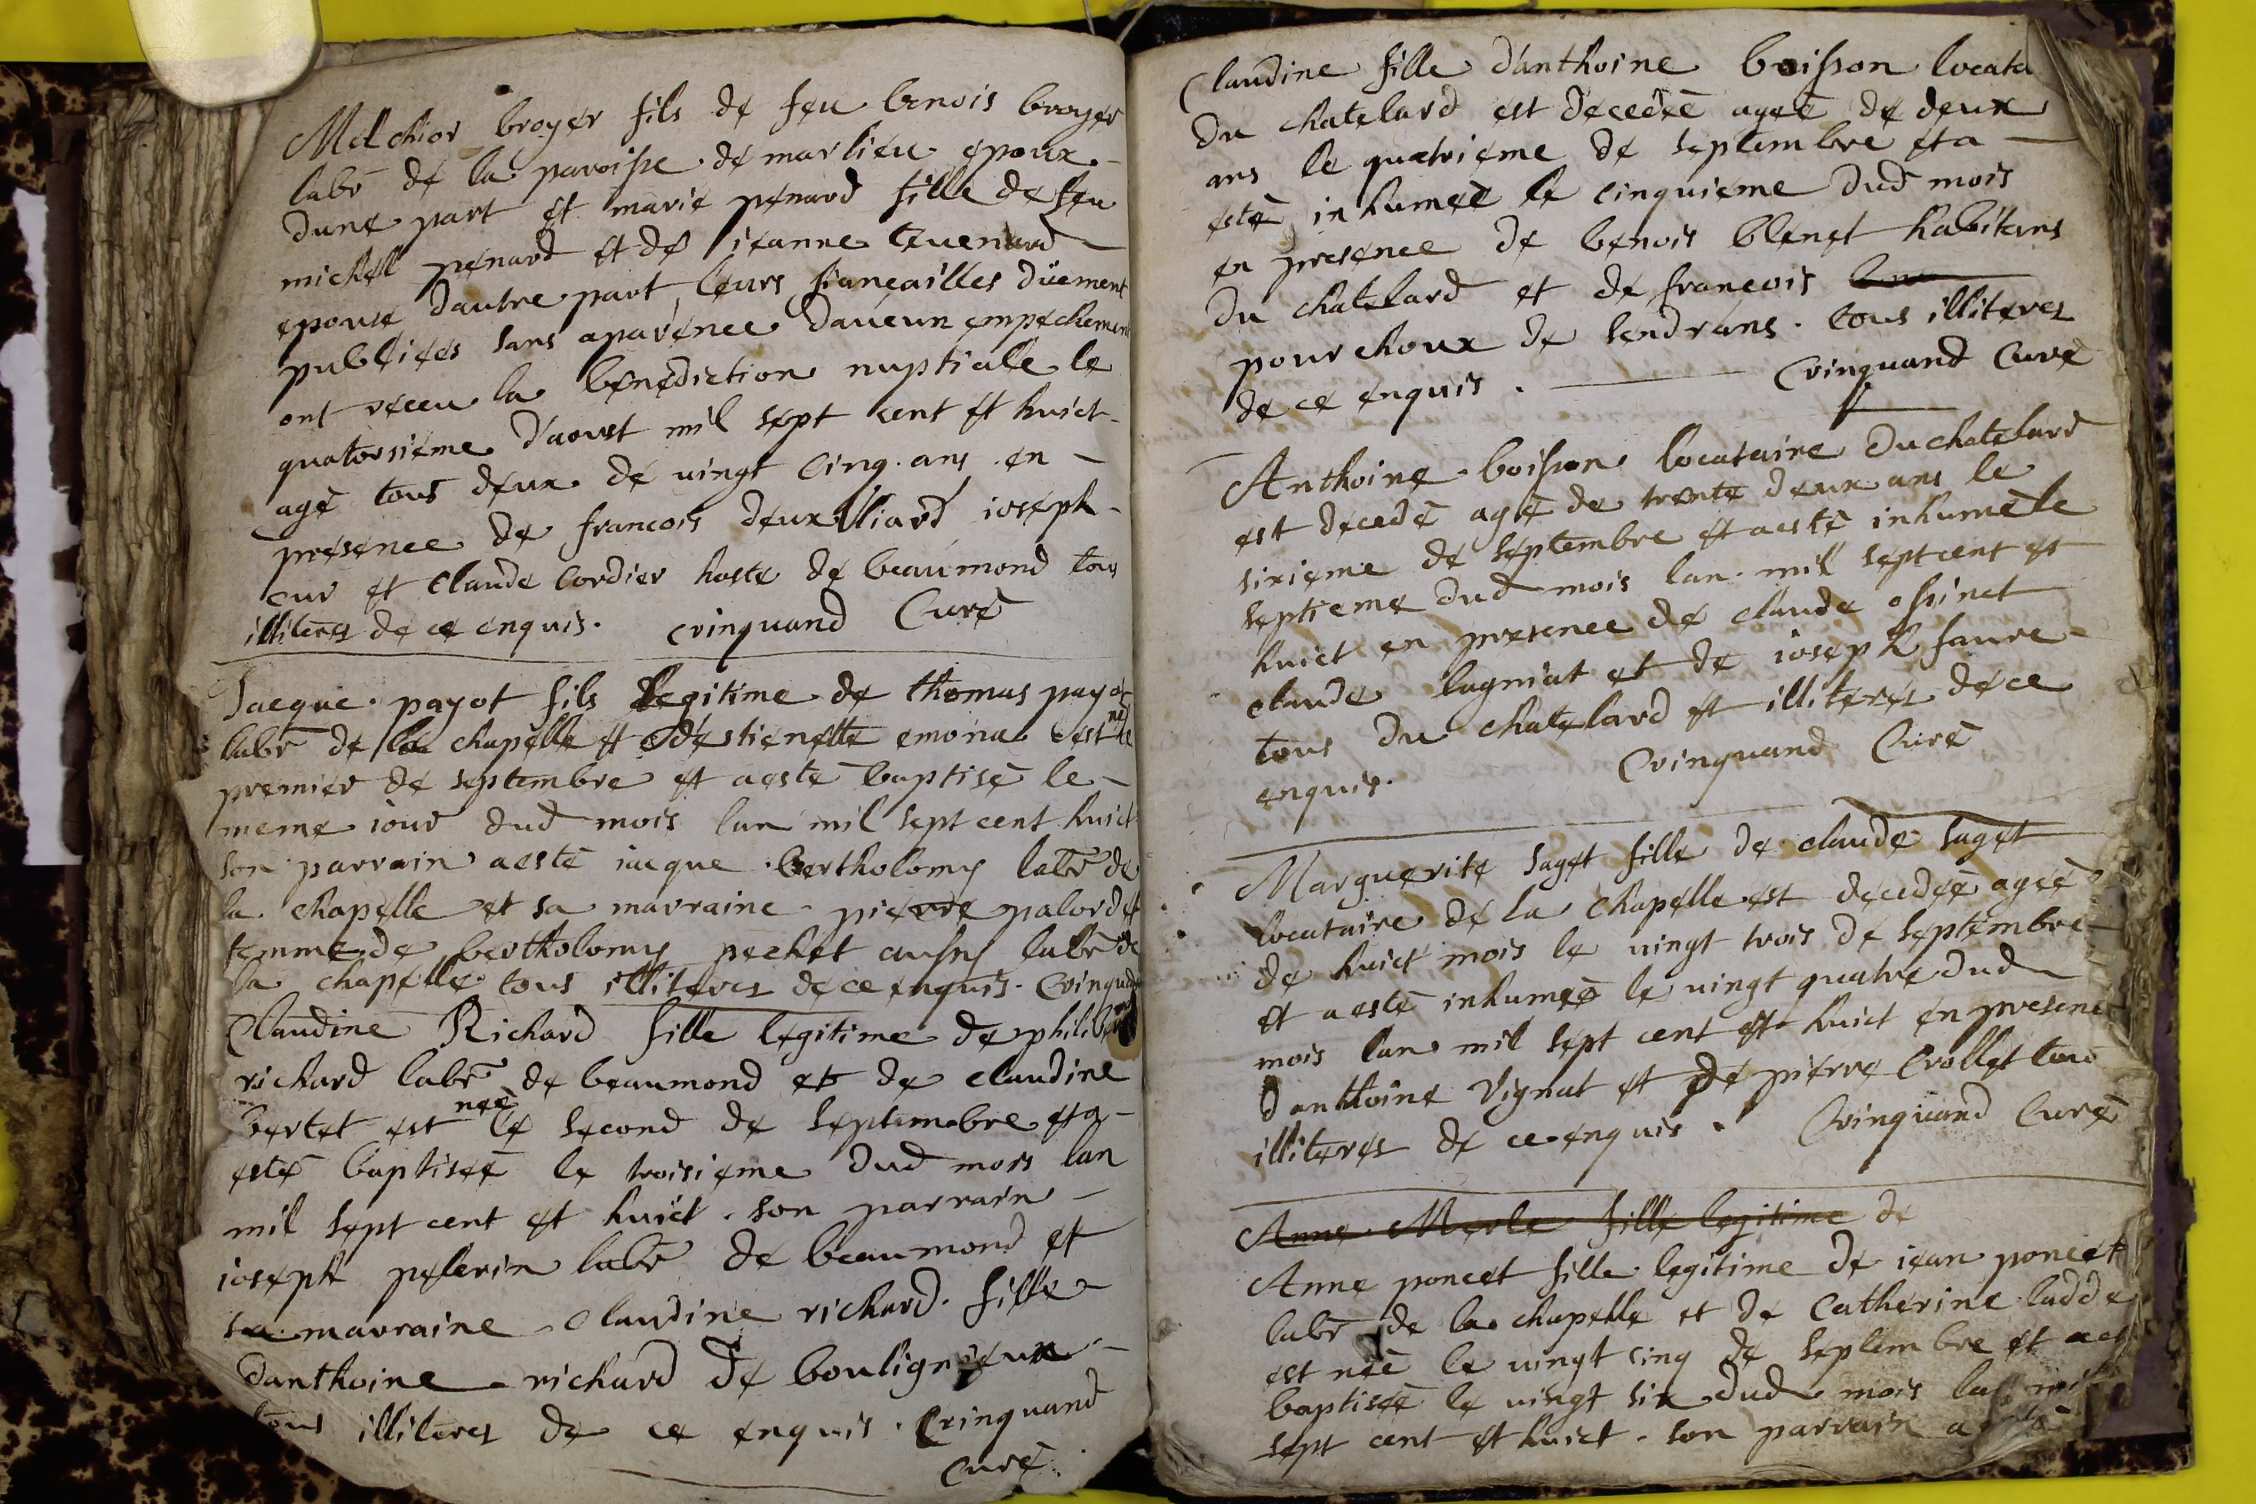 Melchior broyer fils de feu benois broyer
labr de la paroisse de marlieu epoux
dune part et marie penard fille de feu
michel penard et de ieanne
epouse dautre part leurs fiancailles düement
publiées sans aparence daucun empechement
ont receu la benediction nuptialle le
quatorsieme daoust mil sept cent et huict
agé tous deux de uingt cinq ans en
presence de francois ioseph
cur et claude cordier hoste de beaumond tous
illiteres de ce enquis. crinquand Curé
Jacque payot fils legitime de thomas payot
labr de la chapelle et destienette emona est né le
premier de septembre et aesté baptisé le
meme iour dud mois lan mil sept cent huict
son parrain aesté iacque bertholomy labr de
la chapelle et sa marraine pierre palordet
femme de bertholomy pechet aussy labr de
la chapelle tous illiteres de ce enquis. Crinquand
Claudine Richard fille legitime de philibert
richard labr de beaumond et de claudine
bertet est née le second de septembre et a
esté baptiseé le troisieme dud mois lan
mil sept cent et huict. son parrain
ioseph pelerin labr de beaumond et
sa marraine claudine richard fille
danthoine richard de bouligneux
tous illiteres de ce enquis. Crinquand
Curé.
Claudine fille danthoine boisson locata
du chatelard est decedeé ageé de deux
ans le quatrieme de septembre et a
esté inhumeé le cinquieme dud mois
en presence de benois blenet habitans
du chatelard et de francois
pourchoux de sendrans. tous illiteres
de ce enquis. Crinquand Curé
Anthoine boisson locataire du chatelard
est decedé agé de trente deux ans le
sixieme de septembre et aesté inhumé le
septieme dud mois lan mil sept cent et
huict en presence de claude ossinet
claude lugniat et de ioseph faure
tous du chatelard et illiteres de ce
enquis. Crinquand Curé
Marguerite saget fille de claude saget
locataire de la chapelle est decedeé ageé
de huict mois le uingt trois de septembre
et aesté inhumeé le uingt quatre dud
mois lan mil sept cent et huict en presence
danthoine Vignat et de pierre Crollet tous
illiteres de ce enquis. Crinquand Curé
Anne Merle fille legitime de
Anne poncet fille legitime de iean poncet
labr de la chapelle et de Catherine
est neé le uingt cinq de septembre et aesté
baptiseé le uingt six dud mois lan mil
sept cent et huict. son parrain a esté